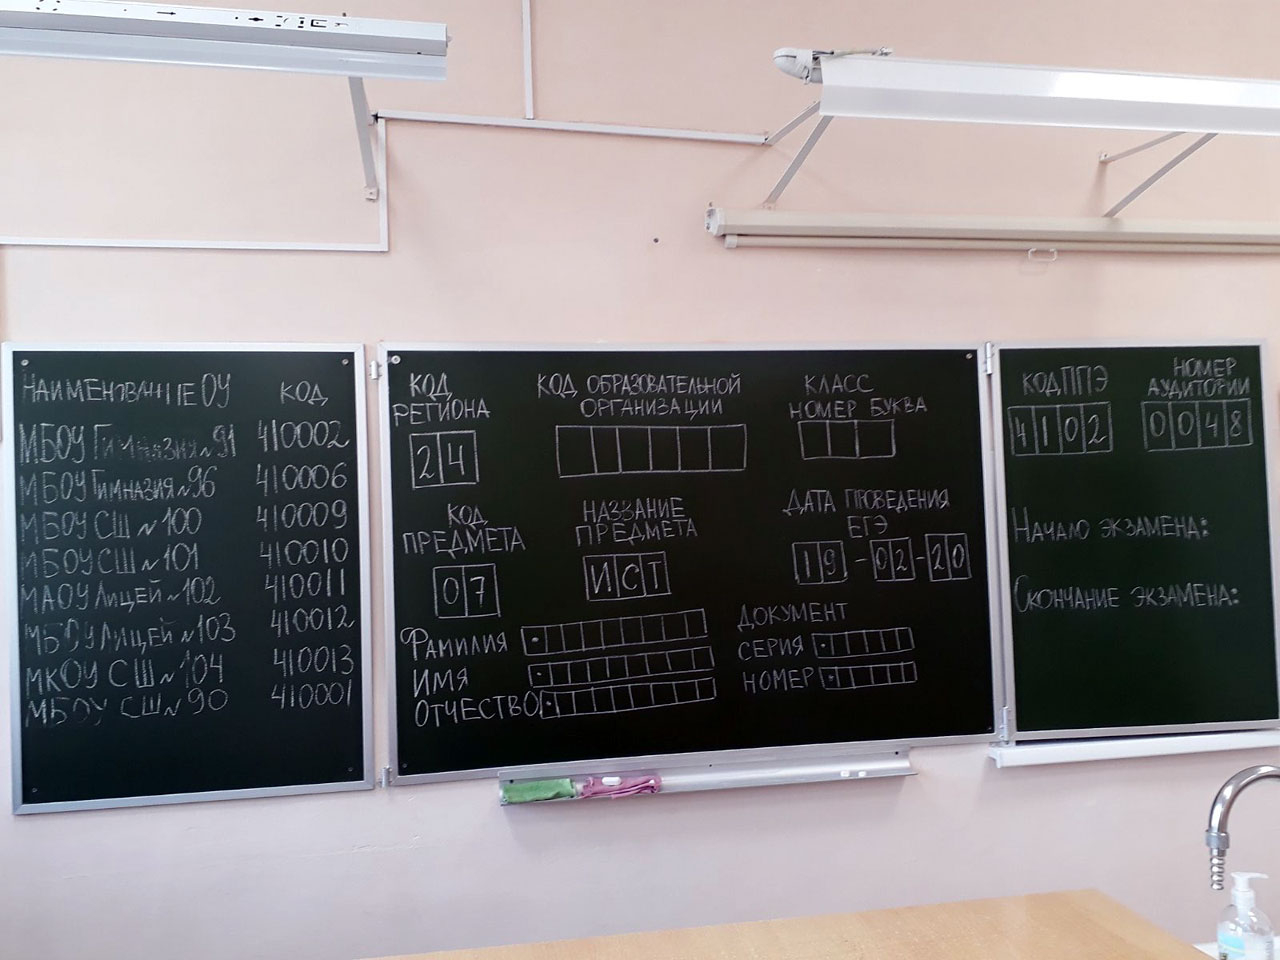 НАИМЕНОВАНИЕ ОУ КОД
МБОУ Гимназия №91 410002
МБОУ Гимназия №96 410006
МБОУ СШ №100 410009
МБОУ СШ №101 410010
МАОУ Лицей №102 410011
МБОУ Лицей №103 410012
МКОУ СШ №104 410013
МБОУ СШ №90 410001
КОД РЕГИОНА
24
КОД ОБРАЗОВАТЕЛЬНОЙ
ОРГАНИЗАЦИИ
КЛАСС
НОМЕР БУКВА
КОД
ПРЕДМЕТА
07
НАЗВАНИЕ
ПРЕДМЕТА
ИСТ
ДАТА ПРОВЕДЕНИЯ
ЕГЭ
19-02-20
ФАМИЛИЯ
ИМЯ
ОТЧЕСТВО
ДОКУМЕНТ
СЕРИЯ
НОМЕР
КОД ППЭ
4102
НОМЕР
АУДИТОРИИ
0048
НАЧАЛО ЭКЗАМЕНА:
ОКОНЧАНИЕ ЭКЗАМЕНА: